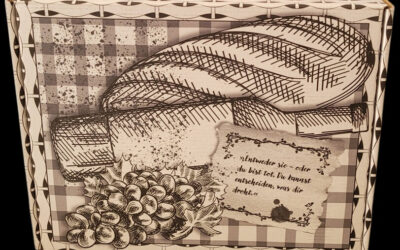 »Entweder sie – oder
du bist tot. Du kannst
entscheiden, was dir
droht.«